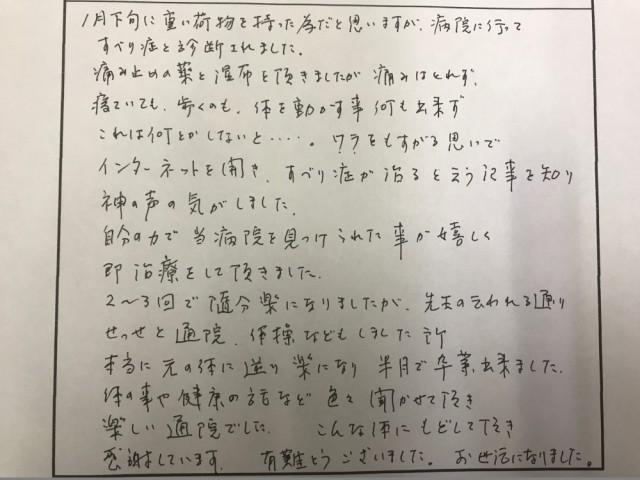 1月下旬に重い荷物を持った為だと思いますが、病院に行って
すべり症と診断されました。
痛み止めの薬と湿布を頂きましたが 痛みはとれず、
寝ていても、歩くのも、体を動かす事 何も出来ず
これは何とかしないと‥‥。ワラをもすがる思いで
インターネットを開き、すべり症が治ると云う記事を知り
神の声の気がしました。
自分の力で 当病院を見つけられた事が嬉しく
即 治療をして頂きました。
2〜3回で随分楽になりましたが、先生の云われる通り
せっせと通院、体操などもしました所
本当に元の体に近り 楽になり 半月で卒業出来ました。
体の事や健康の話など 色々聞かせて頂き
楽しい通院でした。 こんな体にもどして頂き
感謝しています。 有難とうございました。 お世話になりました。